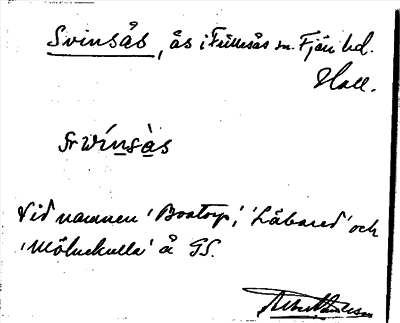 Svinsås, ås i Fullesås sn. Fjäre hd.
Hall.
svínsàs
Vid namnen 'Boatorp', 'Låbared' och
'Möluckulla' å GS.